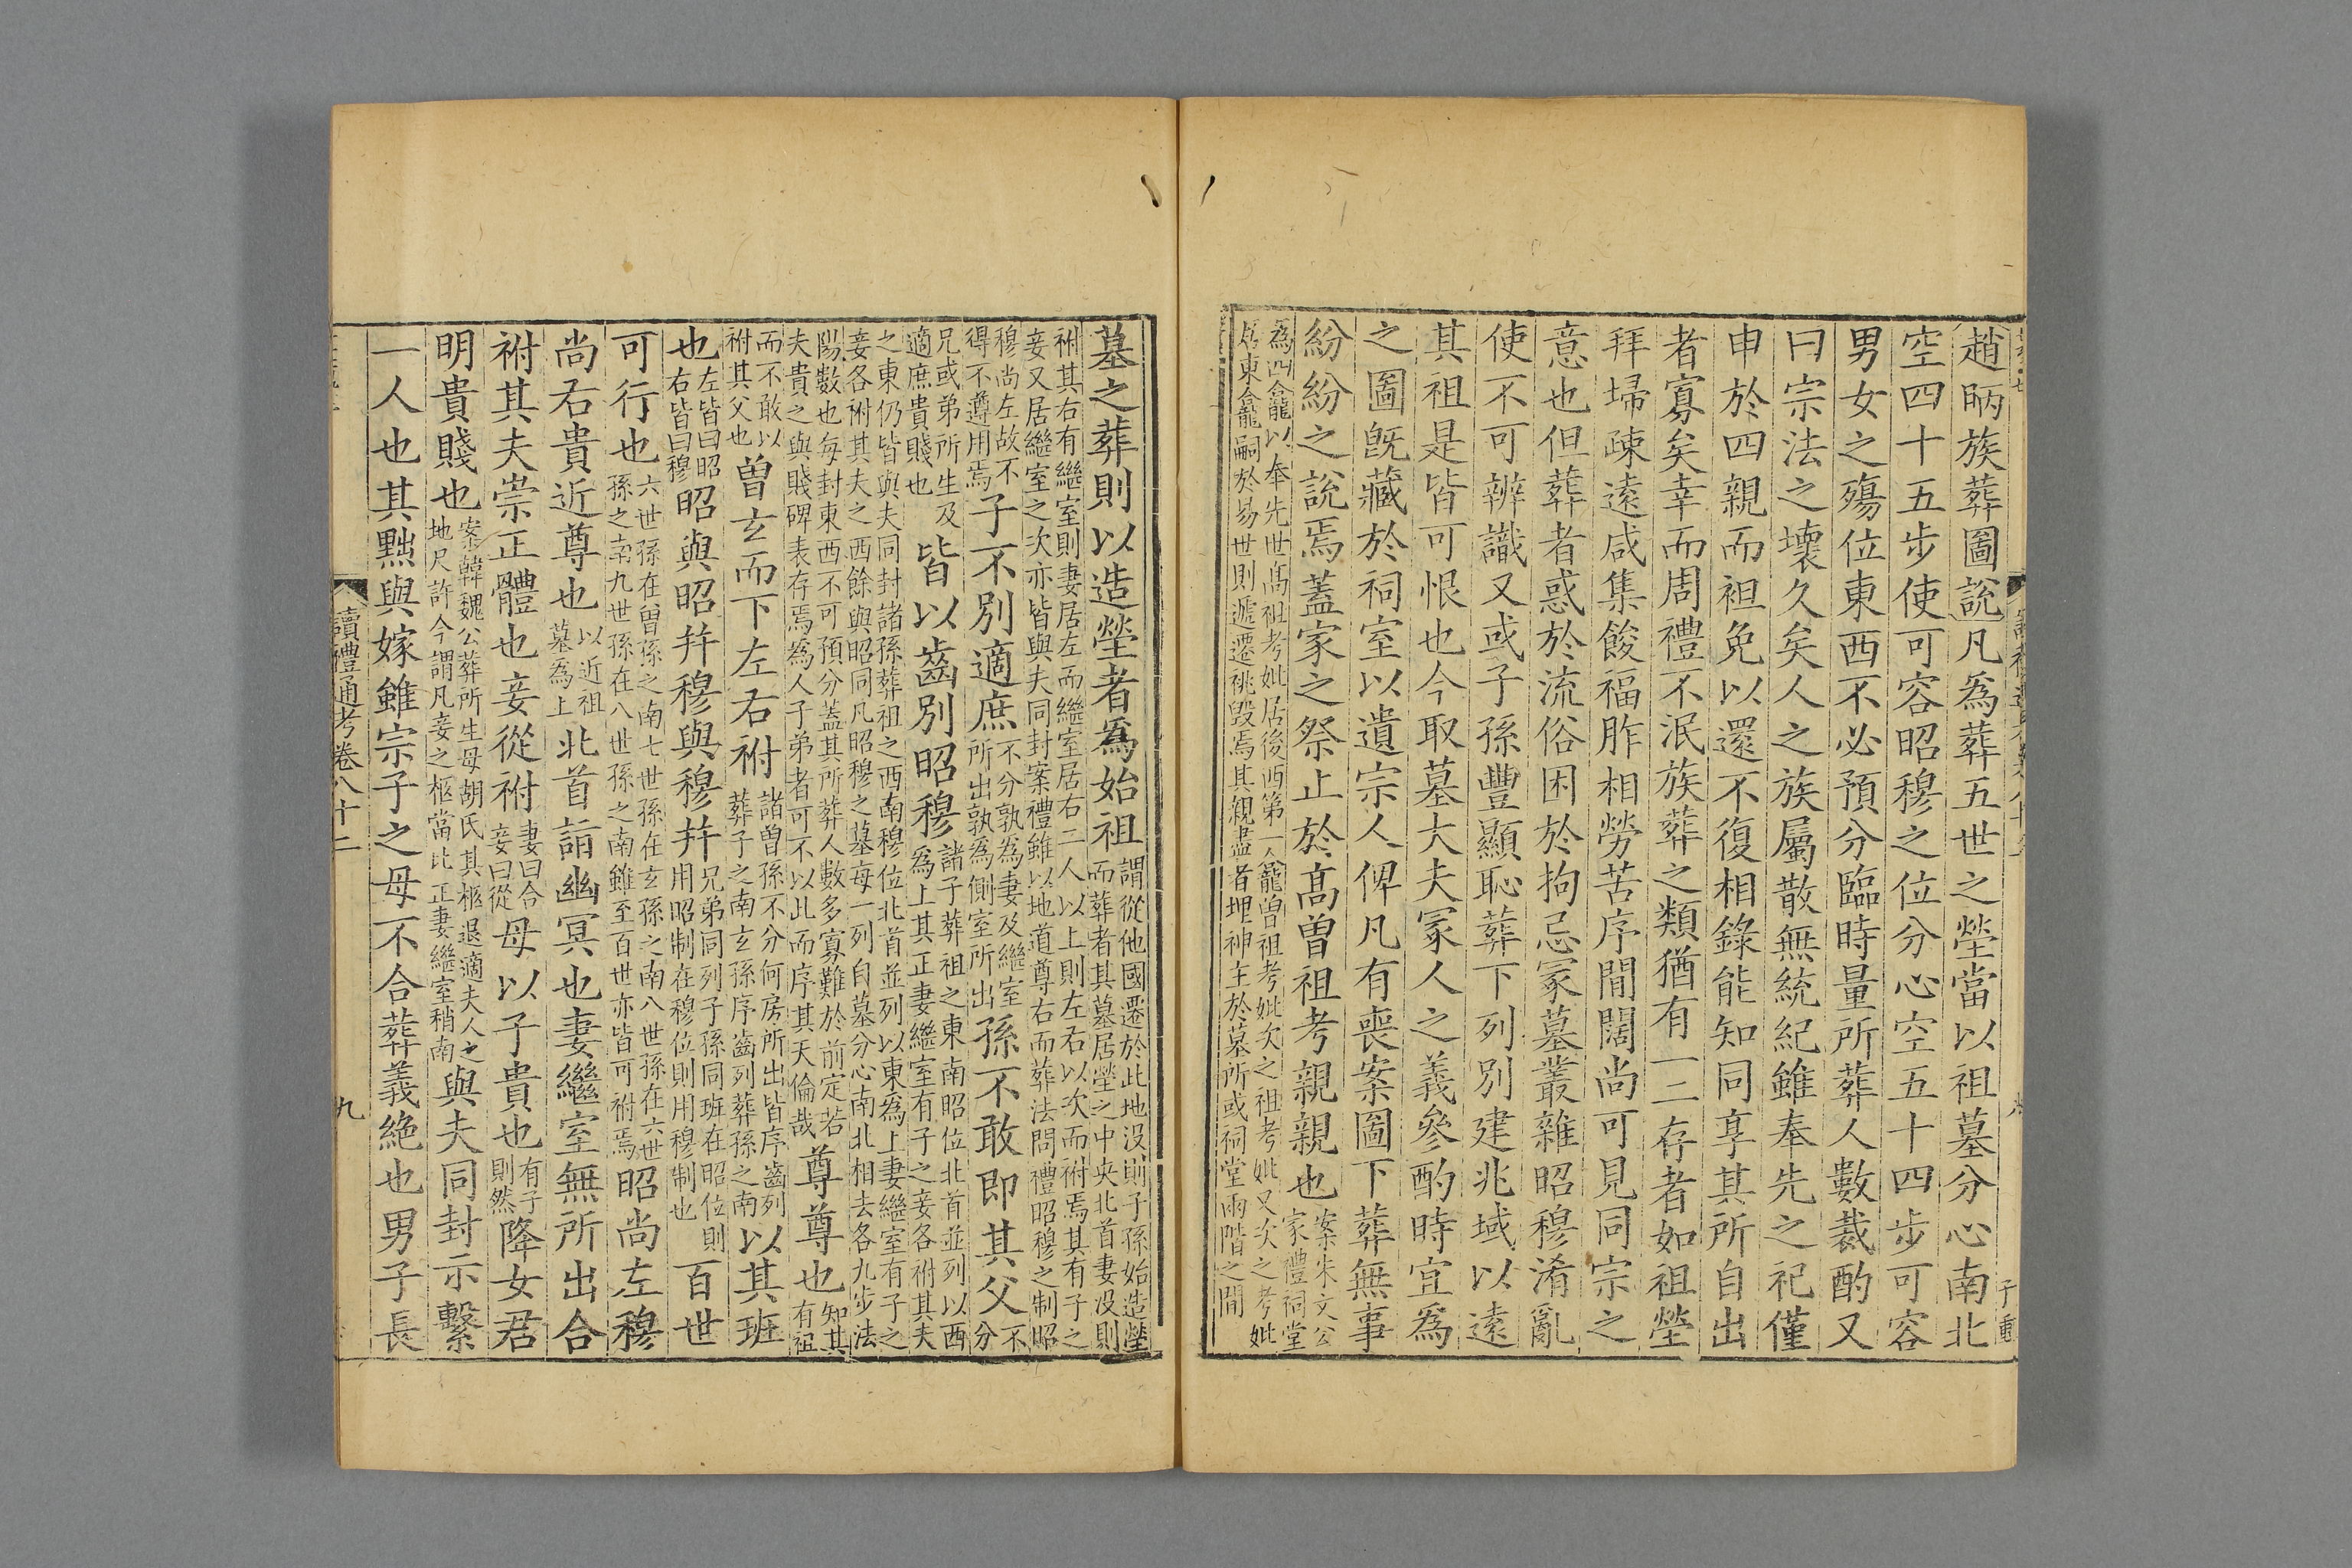 趙昞族葬圖說凡爲葬五世之塋當以祖墓分心南北
空四十五步使可容昭穆之位分心空五十四步可容
男女之殤位東西不必預分臨時量所葬人數裁酌又
曰宗法之壞久矣人之族屬散無統紀雖奉先之祀僅
申於四親而袒免以還不復相錄能知同享其所自出
者寡矣幸而周禮不泯族葬之類猶有一二存者如祖塋
拜埽疎遠咸集餕福胙相勞苦序間闊尚可見同宗之
意也但葬者惑於流俗困於拘忌冢墓叢雜昭穆淆亂
使不可辨識又或子孫豐顯恥葬下列別建兆域以遠
其祖是皆可恨也今取墓大夫冢人之義參酌時宜爲
之圖旣藏於祠室以遺宗人俾凡有喪案圖下葬無事
紛紛之說焉蓋家之祭止於高曾祖考親親也案朱文公
家禮祠堂
爲四龕以奉先世高祖考妣居後西第一龕曾祖考妣次之祖考妣又次之考妣
居東龕嗣於易世則遞遷祧毀焉其親盡者埋神主於墓所或祠堂兩階之間
墓之葬則以造塋者爲始祖謂從他國遷於此地没則子孫始造塋
而葬者其墓居塋之中央北首妻没則
祔其右有繼室則妻居左而繼室居右二人以上則左右以次而祔焉其有子之
妾又居繼室之次亦皆與夫同封案禮雖以地道尊右而葬法問禮昭穆之制昭
穆尚左故不
得不遵用焉子不別適庶不分孰爲妻及繼室
所出孰爲側室所出孫不敢即其父不
分
兄或弟所生及
適庶貴賤也皆以齒別昭穆諸子葬祖之東南昭位北首並列以西
爲上其正妻繼室有子之妾各祔其夫
之東仍皆與夫同封諸孫葬祖之西南穆位北首並列以東爲上妻繼室有子之
妾各祔其夫之西餘與昭同凡昭穆之墓每一列自墓分心南北相去各九步法
陽數也每封東西不可預分蓋其所葬人數多寡難於前定若尊尊也知其
有祖
夫貴之與賤碑表存焉爲人子弟者可不以此而序其天倫哉
而不敢以
祔其父也曾玄而下左右祔諸曾孫不分何房所出皆序齒列
葬子之南玄孫序齒列葬孫之南以其班
也左皆曰昭
右皆曰穆昭與昭并穆與穆并兄弟同列子孫同班在昭位則
用昭制在穆位則用穆制也百世
可行也六世孫在曾孫之南七世孫在玄孫之南八世孫在六世
孫之南九世孫在八世孫之南雖至百世亦皆可祔焉昭尚左穆
尚右貴近尊也以近祖
墓爲上北首詣幽冥也妻繼室無所出合
祔其夫崇正體也妾從祔妻曰合
妾曰從母以子貴也有子
則然降女君
明貴賤也案韓魏公葬所生母胡氏其柩退適夫人之
地尺許今謂凡妾之柩當比正妻繼室稍南與夫同封示繫
一人也其黜與嫁雖宗子之母不合葬義絶也男子長
讀禮通考卷八十二
九